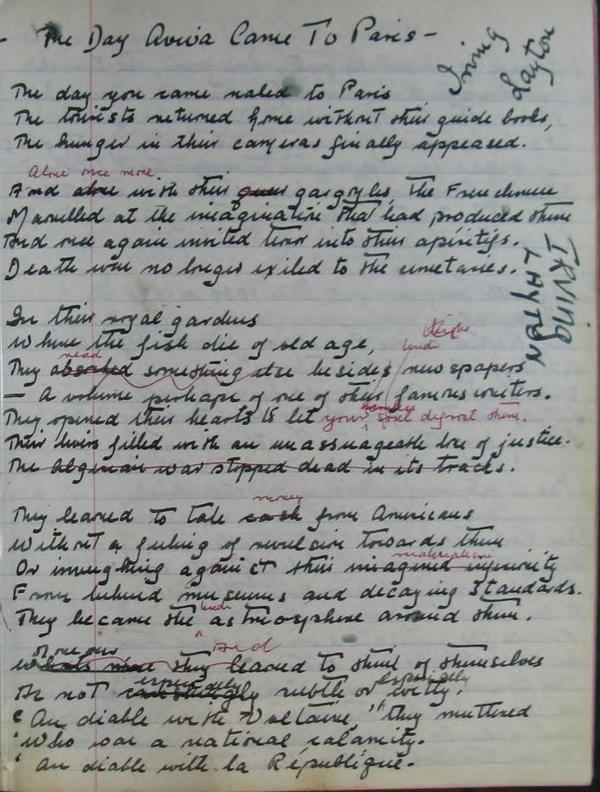 - The Day Aviva Came To Paris -
Irving Layton
The day you came naked to Paris
The tourists returned home without their guide books,
The hunger in their cameras finally appeased.
Alone once more
And alone with their gargoyles, the Frenchmen
Marvelled at the imagination that had produced them
And once again invited terror into their apéritifs.
Death was no longer exiled to the cemeteries.
IRVING LAYTON
In their royal gardens
Where the fish die of old age,
read
They absorbed something else besides newspapers
- A volume perhaps of one of their famous writers.
They opened their hearts to let your soul defrost them.
Their livers filled with an unassuageable love of justice.
The Algerian war stopped dead in its tracks.
money
They learned to take cash from Americans
Without a feeling of revulsion towards them
Or inveighing against their imagined inferiority
From behind museums and decaying standards.
They became the atmosphere around them.
learned to think of themselves
especially especially
As not subtle or witty.
"Au diable with Voltaire," they muttered
'Who was a national calamity.
'Au diable with la République.